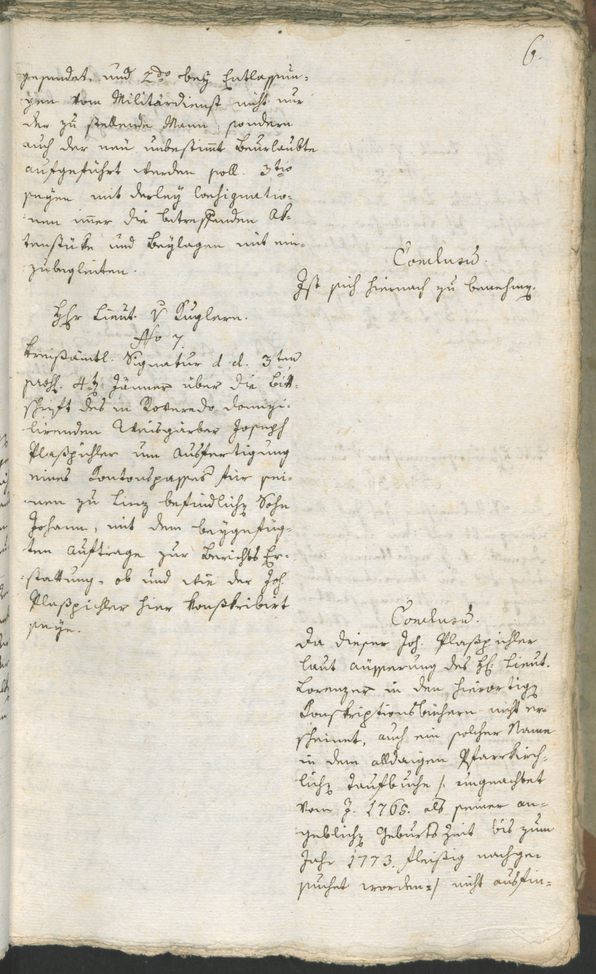 6.
gesendet, und 2do bey Entlassun-
gen vom Militärdienst nicht nur
der zu stellende Mann sondern
auch der neu unbestimt Beurlaubte
aufgeführt werden soll. 3tio
seyen mit derley Consignatio-
nen imer die betreffenden Ak-
tenstüke und Beylagen mit ein-
zubegleiten.
Conclusum.
Ist sich hiernach zu benehmen.
Hhr Lieut. v Kuglern.
No 7.
Kreisämtl. Signatur d. d. 3ten
präs. 4t Jänner über die Bitt-
schrift des in Roveredo domizi-
lirenden Weisgärber Joseph
Plaßpichler um Ausfertigung
eines Kontonspasses für sei-
nen zu Linz befindlichen Sohn
Johann, mit dem beygefüg-
ten Auftrage zur Berichts Er-
stattung, ob und wie der Joh
Plaßpichler hier konskribirt
seye.
Conclusum.
Da dieser Joh. Plaßpichler
laut äusserung des H. Lieut.
Lorenzer in den hierortigen
Konskriptionsbüchern nicht er-
scheinet, auch ein solcher Name
in dem alldaigen Pfarrkirch-
lichen Taufbuche /: ungeachtet
vom J. 1768. als seiner an-
geblichen Geburts Zeit bis zum
Jahr 1773. fleissig nachge-
suchet worden :/ nicht ausfin-